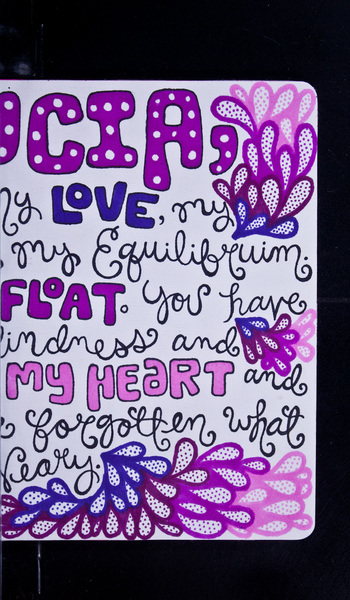 OCIA,
my LOVE, my
my Equilibrium.
FLOAT. You have
kindness and
MY HEART and
forgotten what